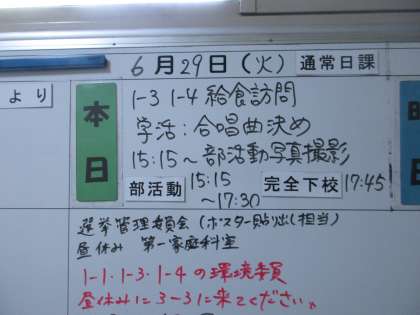 6月29日(火) 通常日課
より
本日
1-3 1-4 給食訪問
学活:合唱曲決め
15:15～部活動写真撮影
部活動 15:15～17:30 完全下校 17:45
選挙管理委員会(ポスター貼出し担当)
昼休み 第一家庭科室
1-1・1-3・1-4の環境委員
昼休みに3-3に来てください。